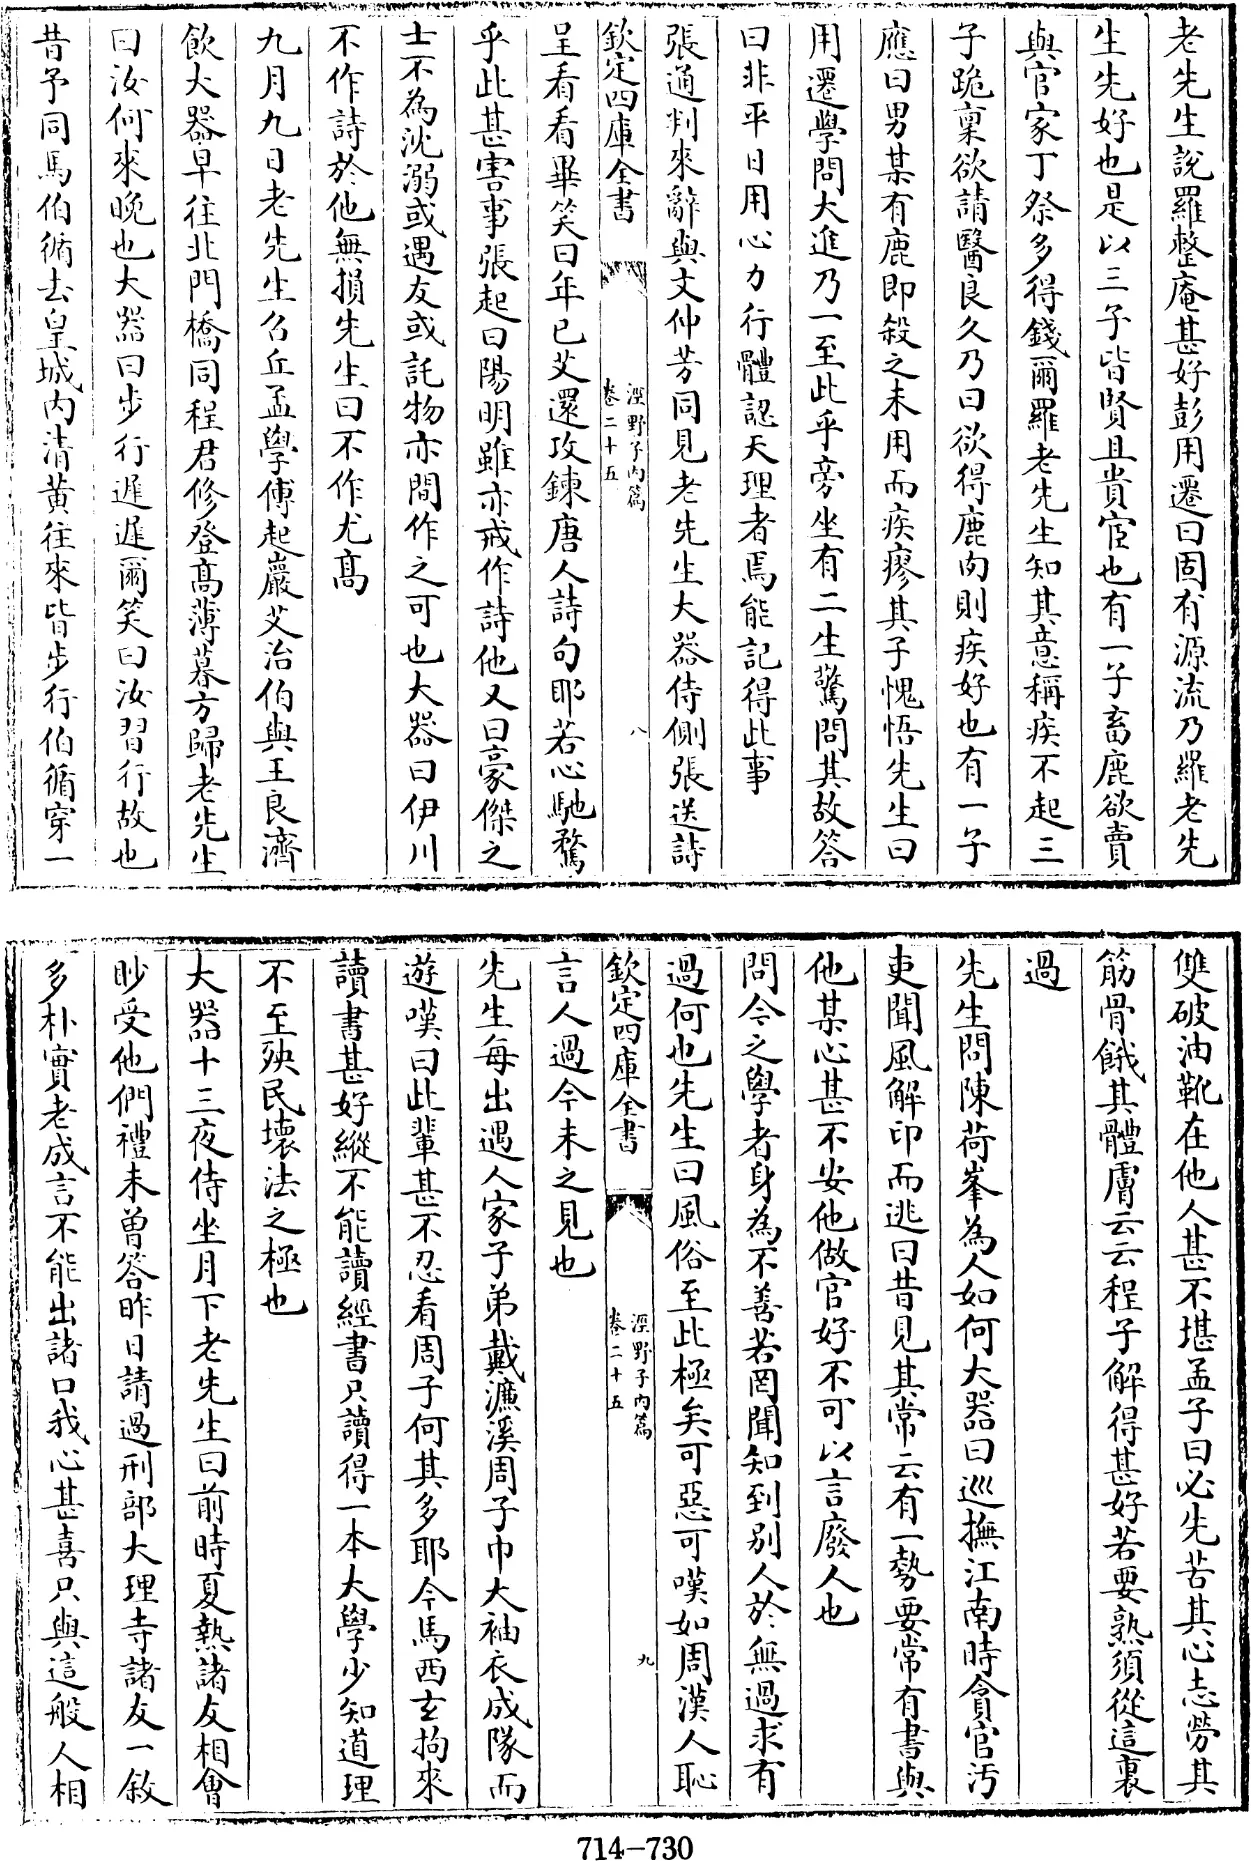 老先生說羅整庵甚好彭用遷曰固有源流乃羅老先
生先好也是以三子皆賢且貴宦也有一子畜鹿欲賣
與官家丁祭多得錢爾羅老先生知其意稱疾不起三
子跪稟欲請醫良久乃曰欲得鹿肉則疾好也有一子
應曰男某有鹿即殺之未用而疾瘳其子愧悟先生曰
用遷學問大進乃一至此乎旁坐有二生驚問其故答
曰非平日用心力行體認天理者焉能記得此事
張通判來辭與文仲芳同見老先生大器侍側張送詩
欽定四庫全書
涇野子內篇
卷二十五
八
呈看看畢笑曰年已艾還攻鍊唐人詩句耶若心馳騖
乎此甚害事張起曰陽明雖亦戒作詩他又曰豪傑之
士不為沈溺或遇友或託物亦間作之可也大器曰伊川
不作詩於他無損先生曰不作尤髙
九月九日老先生召丘孟學傅起巖艾治伯與王良濟
飲大器早往北門橋同程君修登髙薄暮方歸老先生
曰汝何來晚也大器曰步行遲遲爾笑曰汝習行故也
昔予同馬伯循去皇城内清黄往來皆步行伯循穿一
雙破油靴在他人甚不堪孟子曰必先苦其心志勞其
筋骨餓其體膚云云程子解得甚好若要熟須從這裏
過
先生問陳荷峯為人如何大器曰巡撫江南時貪官汚
吏聞風解印而逃曰昔見其常云有一勢要常有書與
他某心甚不安他做官好不可以言廢人也
問今之學者身為不善若罔聞知到别人於無過求有
過何也先生曰風俗至此極矣可惡可嘆如周漢人恥
欽定四庫全書
涇野子內篇
卷二十五
九
言人過今未之見也
先生每出遇人家子弟戴濂溪周子巾大袖衣成隊而
遊嘆曰此輩甚不忍看周子何其多耶今馬西玄拘來
讀書甚好縱不能讀經書只讀得一本大學少知道理
不至殃民壞法之極也
大器十三夜侍坐月下老先生曰前時夏熱諸友相會
眇受他們禮未曾答昨日請過刑部大理寺諸友一敘
多朴實老成言不能出諸口我心甚喜只與這般人相
714-730